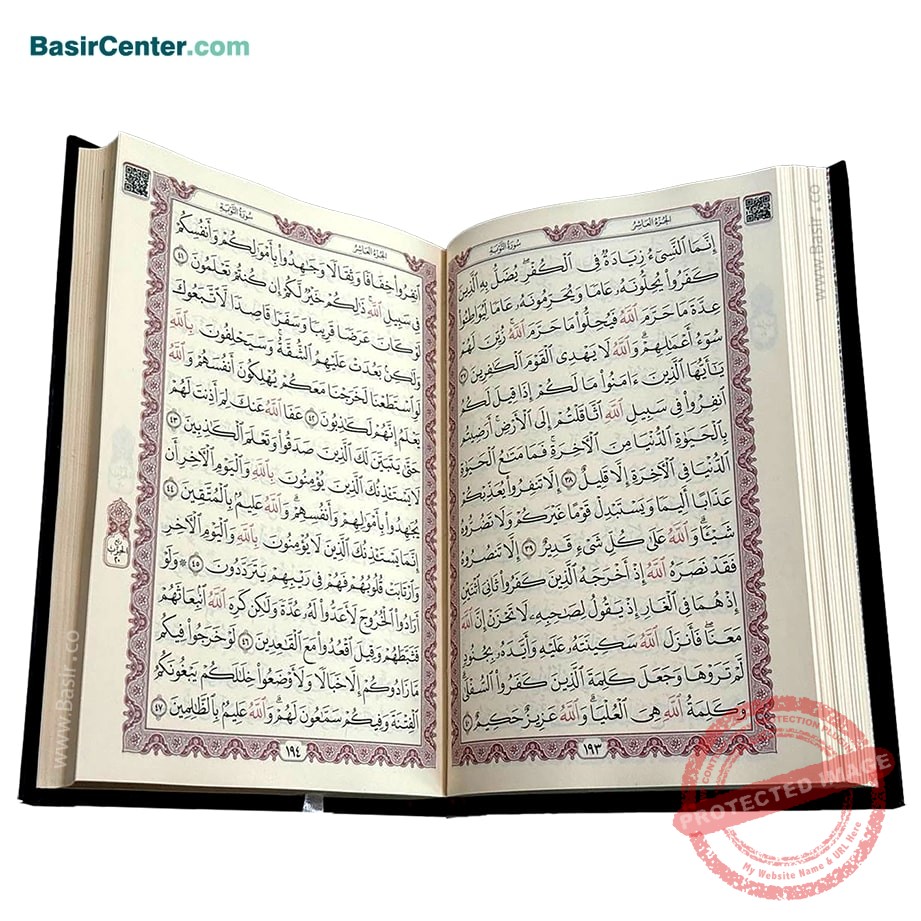 BasirCenter.com
سورة التوبة
الجزء العاشر
إِنَّمَا ٱلنَّسِىٓءُ زِيَادَةٌ فِى ٱلْكُفْرِ يُضَلُّ بِهِ ٱلَّذِينَ
كَفَرُوا۟ يُحِلُّونَهُۥ عَامًا وَيُحَرِّمُونَهُۥ عَامًا لِّيُوَاطِـُٔوا۟
عِدَّةَ مَا حَرَّمَ ٱللَّهُ فَيُحِلُّوا۟ مَا حَرَّمَ ٱللَّهُ زُيِّنَ لَهُمْ
سُوٓءُ أَعْمَٰلِهِمْ وَٱللَّهُ لَا يَهْدِى ٱلْقَوْمَ ٱلْكَٰفِرِينَ ٣٧
يَٰٓأَيُّهَا ٱلَّذِينَ ءَامَنُوا۟ مَا لَكُمْ إِذَا قِيلَ لَكُمُ
ٱنفِرُوا۟ فِى سَبِيلِ ٱللَّهِ ٱثَّاقَلْتُمْ إِلَى ٱلْأَرْضِ أَرَضِيتُم
بِٱلْحَيَوٰةِ ٱلدُّنْيَا مِنَ ٱلْءَاخِرَةِ فَمَا مَتَٰعُ ٱلْحَيَوٰةِ
ٱلدُّنْيَا فِى ٱلْءَاخِرَةِ إِلَّا قَلِيلٌ ٣٨ إِلَّا تَنفِرُوا۟ يُعَذِّبْكُمْ
عَذَابًا أَلِيمًا وَيَسْتَبْدِلْ قَوْمًا غَيْرَكُمْ وَلَا تَضُرُّوهُ
شَيْـًٔا وَٱللَّهُ عَلَىٰ كُلِّ شَىْءٍ قَدِيرٌ ٣٩ إِلَّا تَنصُرُوهُ
فَقَدْ نَصَرَهُ ٱللَّهُ إِذْ أَخْرَجَهُ ٱلَّذِينَ كَفَرُوا۟ ثَانِىَ ٱثْنَيْنِ
إِذْ هُمَا فِى ٱلْغَارِ إِذْ يَقُولُ لِصَٰحِبِهِۦ لَا تَحْزَنْ إِنَّ ٱللَّهَ
مَعَنَا فَأَنزَلَ ٱللَّهُ سَكِينَتَهُۥ عَلَيْهِ وَأَيَّدَهُۥ بِجُنُودٍ
لَّمْ تَرَوْهَا وَجَعَلَ كَلِمَةَ ٱلَّذِينَ كَفَرُوا۟ ٱلسُّفْلَىٰ
وَكَلِمَةُ ٱللَّهِ هِىَ ٱلْعُلْيَا وَٱللَّهُ عَزِيزٌ حَكِيمٌ ٤٠
١٩٣
الجزء العاشر
سورة التوبة
ٱنفِرُوا۟ خِفَافًا وَثِقَالًا وَجَٰهِدُوا۟ بِأَمْوَٰلِكُمْ وَأَنفُسِكُمْ
فِى سَبِيلِ ٱللَّهِ ذَٰلِكُمْ خَيْرٌ لَّكُمْ إِن كُنتُمْ تَعْلَمُونَ ٤١
لَوْ كَانَ عَرَضًا قَرِيبًا وَسَفَرًا قَاصِدًا لَّٱتَّبَعُوكَ
وَلَٰكِنۢ بَعُدَتْ عَلَيْهِمُ ٱلشُّقَّةُ وَسَيَحْلِفُونَ بِٱللَّهِ
لَوِ ٱسْتَطَعْنَا لَخَرَجْنَا مَعَكُمْ يُهْلِكُونَ أَنفُسَهُمْ وَٱللَّهُ
يَعْلَمُ إِنَّهُمْ لَكَٰذِبُونَ ٤٢ عَفَا ٱللَّهُ عَنكَ لِمَ أَذِنتَ لَهُمْ
حَتَّىٰ يَتَبَيَّنَ لَكَ ٱلَّذِينَ صَدَقُوا۟ وَتَعْلَمَ ٱلْكَٰذِبِينَ ٤٣
لَا يَسْتَـْٔذِنُكَ ٱلَّذِينَ يُؤْمِنُونَ بِٱللَّهِ وَٱلْيَوْمِ ٱلْءَاخِرِ أَن
يُجَٰهِدُوا۟ بِأَمْوَٰلِهِمْ وَأَنفُسِهِمْ وَٱللَّهُ عَلِيمٌۢ بِٱلْمُتَّقِينَ ٤٤
إِنَّمَا يَسْتَـْٔذِنُكَ ٱلَّذِينَ لَا يُؤْمِنُونَ بِٱللَّهِ وَٱلْيَوْمِ ٱلْءَاخِرِ
وَٱرْتَابَتْ قُلُوبُهُمْ فَهُمْ فِى رَيْبِهِمْ يَتَرَدَّدُونَ ٤٥ ۞ وَلَوْ
أَرَادُوا۟ ٱلْخُرُوجَ لَأَعَدُّوا۟ لَهُۥ عُدَّةً وَلَٰكِن كَرِهَ ٱللَّهُ ٱنۢبِعَاثَهُمْ
فَثَبَّطَهُمْ وَقِيلَ ٱقْعُدُوا۟ مَعَ ٱلْقَٰعِدِينَ ٤٦ لَوْ خَرَجُوا۟ فِيكُم
مَّا زَادُوكُمْ إِلَّا خَبَالًا وَلَأَوْضَعُوا۟ خِلَٰلَكُمْ يَبْغُونَكُمُ
ٱلْفِتْنَةَ وَفِيكُمْ سَمَّٰعُونَ لَهُمْ وَٱللَّهُ عَلِيمٌۢ بِٱلظَّٰلِمِينَ ٤٧
١٩٤
www.Basir.co
www.Basir.co
PROTECTED IMAGE
My Website Name & URL Here